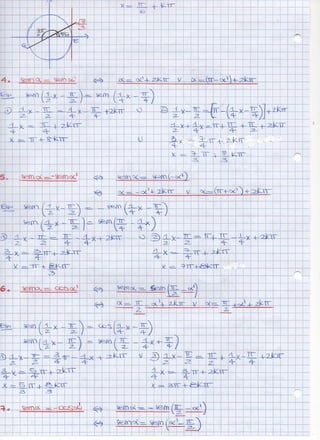 x = π/6 + kπ
4. sen α = sen α' ⇔ α = α' + 2kπ ∨ α = (π - α') + 2kπ
sen (1/2 x - π/2) = sen (1/4 x - π/4)
① 1/2 x - π/2 = 1/4 x - π/4 + 2kπ ∪ ② 1/2 x - π/2 = [π - (1/4 x - π/4)] + 2kπ
1/4 x = π/4 + 2kπ 1/2 x + 1/4 x = π + π/4 + π/2 + 2kπ
x = π + 8kπ ∪ 3/4 x = 7/4 π + 2kπ
x = 7/3 π + 8/3 kπ
5. sen α = -sen α' ⇔ sen α = sen (-α')
⇔ α = -α' + 2kπ ∨ α = (π + α') + 2kπ
sen (1/2 x - π/2) = - sen (1/4 x - π/4)
sen (1/2 x - π/2) = sen (π/4 - 1/4 x)
① 1/2 x - π/2 = π/4 - 1/4 x + 2kπ ∪ ② 1/2 x - π/2 = π + π/4 - 1/4 x + 2kπ
x = π + 8/3 kπ x = 7π + 8kπ
6. sen α = cos α' ⇔ sen α = sen (π/2 - α')
⇔ α = π/2 - α' + 2kπ ∨ α = π/2 + α' + 2kπ
sen (1/2 x - π/2) = cos (1/4 x - π/4)
sen (1/2 x - π/2) = sen (π/2 - 1/4 x + π/4)
① 1/2 x - π/2 = 3/4 π - 1/4 x + 2kπ ∨ ② 1/2 x - π/2 = π/2 + 1/4 x - π/4 + 2kπ
3/4 x = 5/4 π + 2kπ 1/4 x = 3/4 π + 2kπ
x = 5/3 π + 8/3 kπ x = 3π + 8kπ
7. sen α = -cos α' ⇔ sen α = - sen (π/2 - α')
⇔ sen α = sen (α' - π/2)